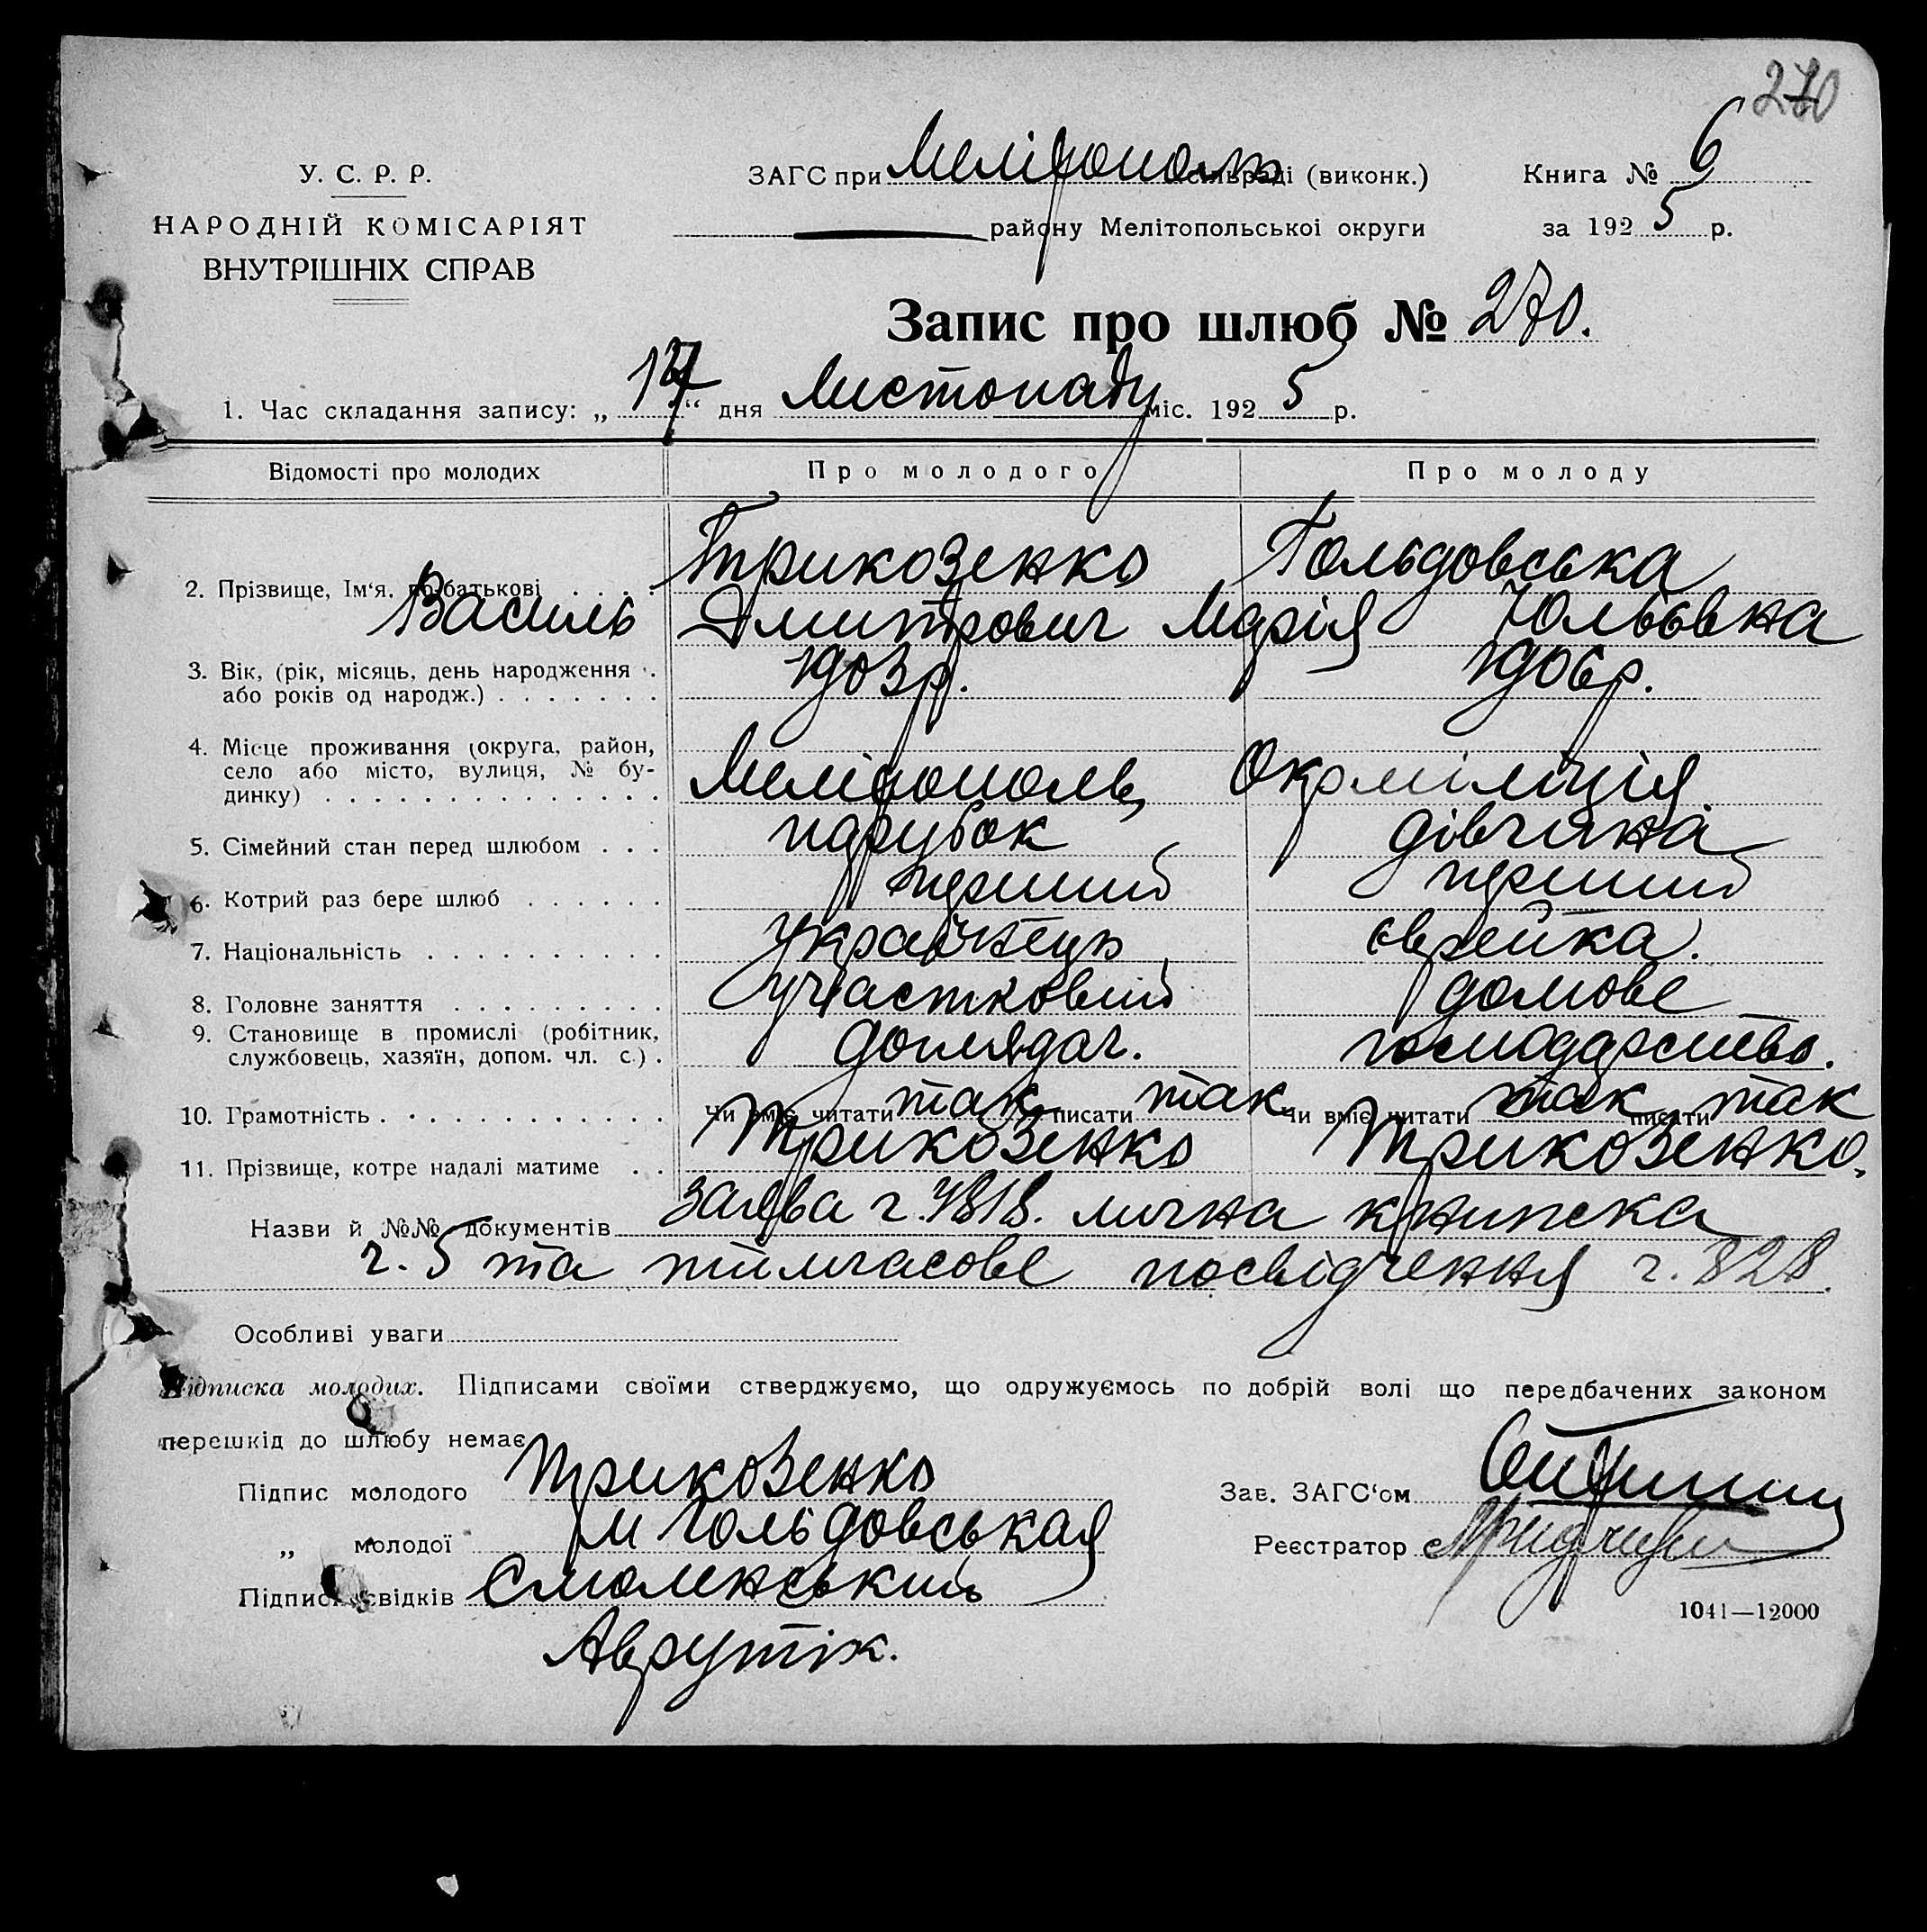 270
У. С. Р. Р.
НАРОДНІЙ КОМІСАРІЯТ
ВНУТРІШНІХ СПРАВ
ЗАГС при Мелітополь сільраді (виконк.)
району Мелітопольської округи
Книга № 6
за 1925 р.
Запис про шлюб № 270.
1. Час складання запису: „17“ дня Листопаду міс. 1925 р.
Відомості про молодих Про молодого Про молоду
2. Прізвище, Ім‘я. по батькові . . . . Трикозенко Гольдовська
Василь Дмитрович Марія Юльевна
3. Вік, (рік, місяць, день народження . 1903р. 1906р.
або років од народж.) . . . . . . .
4. Місце проживання (округа, район,
село або місто, вулиця, № бу- Мелітополь, Окрміліція.
динку) . . . . . . . . . . . . . .
5. Сімейний стан перед шлюбом . . . парубок дівчина
6. Котрий раз бере шлюб . . . . . . перший перший
7. Національність . . . . . . . . . . українець єврейка.
8. Головне заняття . . . . . . . . . участковий домове
9. Становище в промислі (робітник,
службовець, хазяїн, допом. чл. с.) . доглядач. господарство.
10. Грамотність . . . . . . . . . . . . Чи вміє читати так писати так Чи вміє читати так писати так
11. Прізвище, котре надалі матиме . . Трикозенко Трикозенко.
Назви й №№ документів заява ч. 7818. лична книжка
ч. 5 та тимчасове посвідчення ч. 828.
Особливі уваги
Підписка молодих. Підписами своїми стверджуємо, що одружуємось по добрій волі що передбачених законом
перешкід до шлюбу немає
Підпис молодого Трикозенко
„ молодої М Гольдовськая
Підписи свідків Смоленський
Аврутік.
Зав. ЗАГС‘ом
Реєстратор
1041—12000